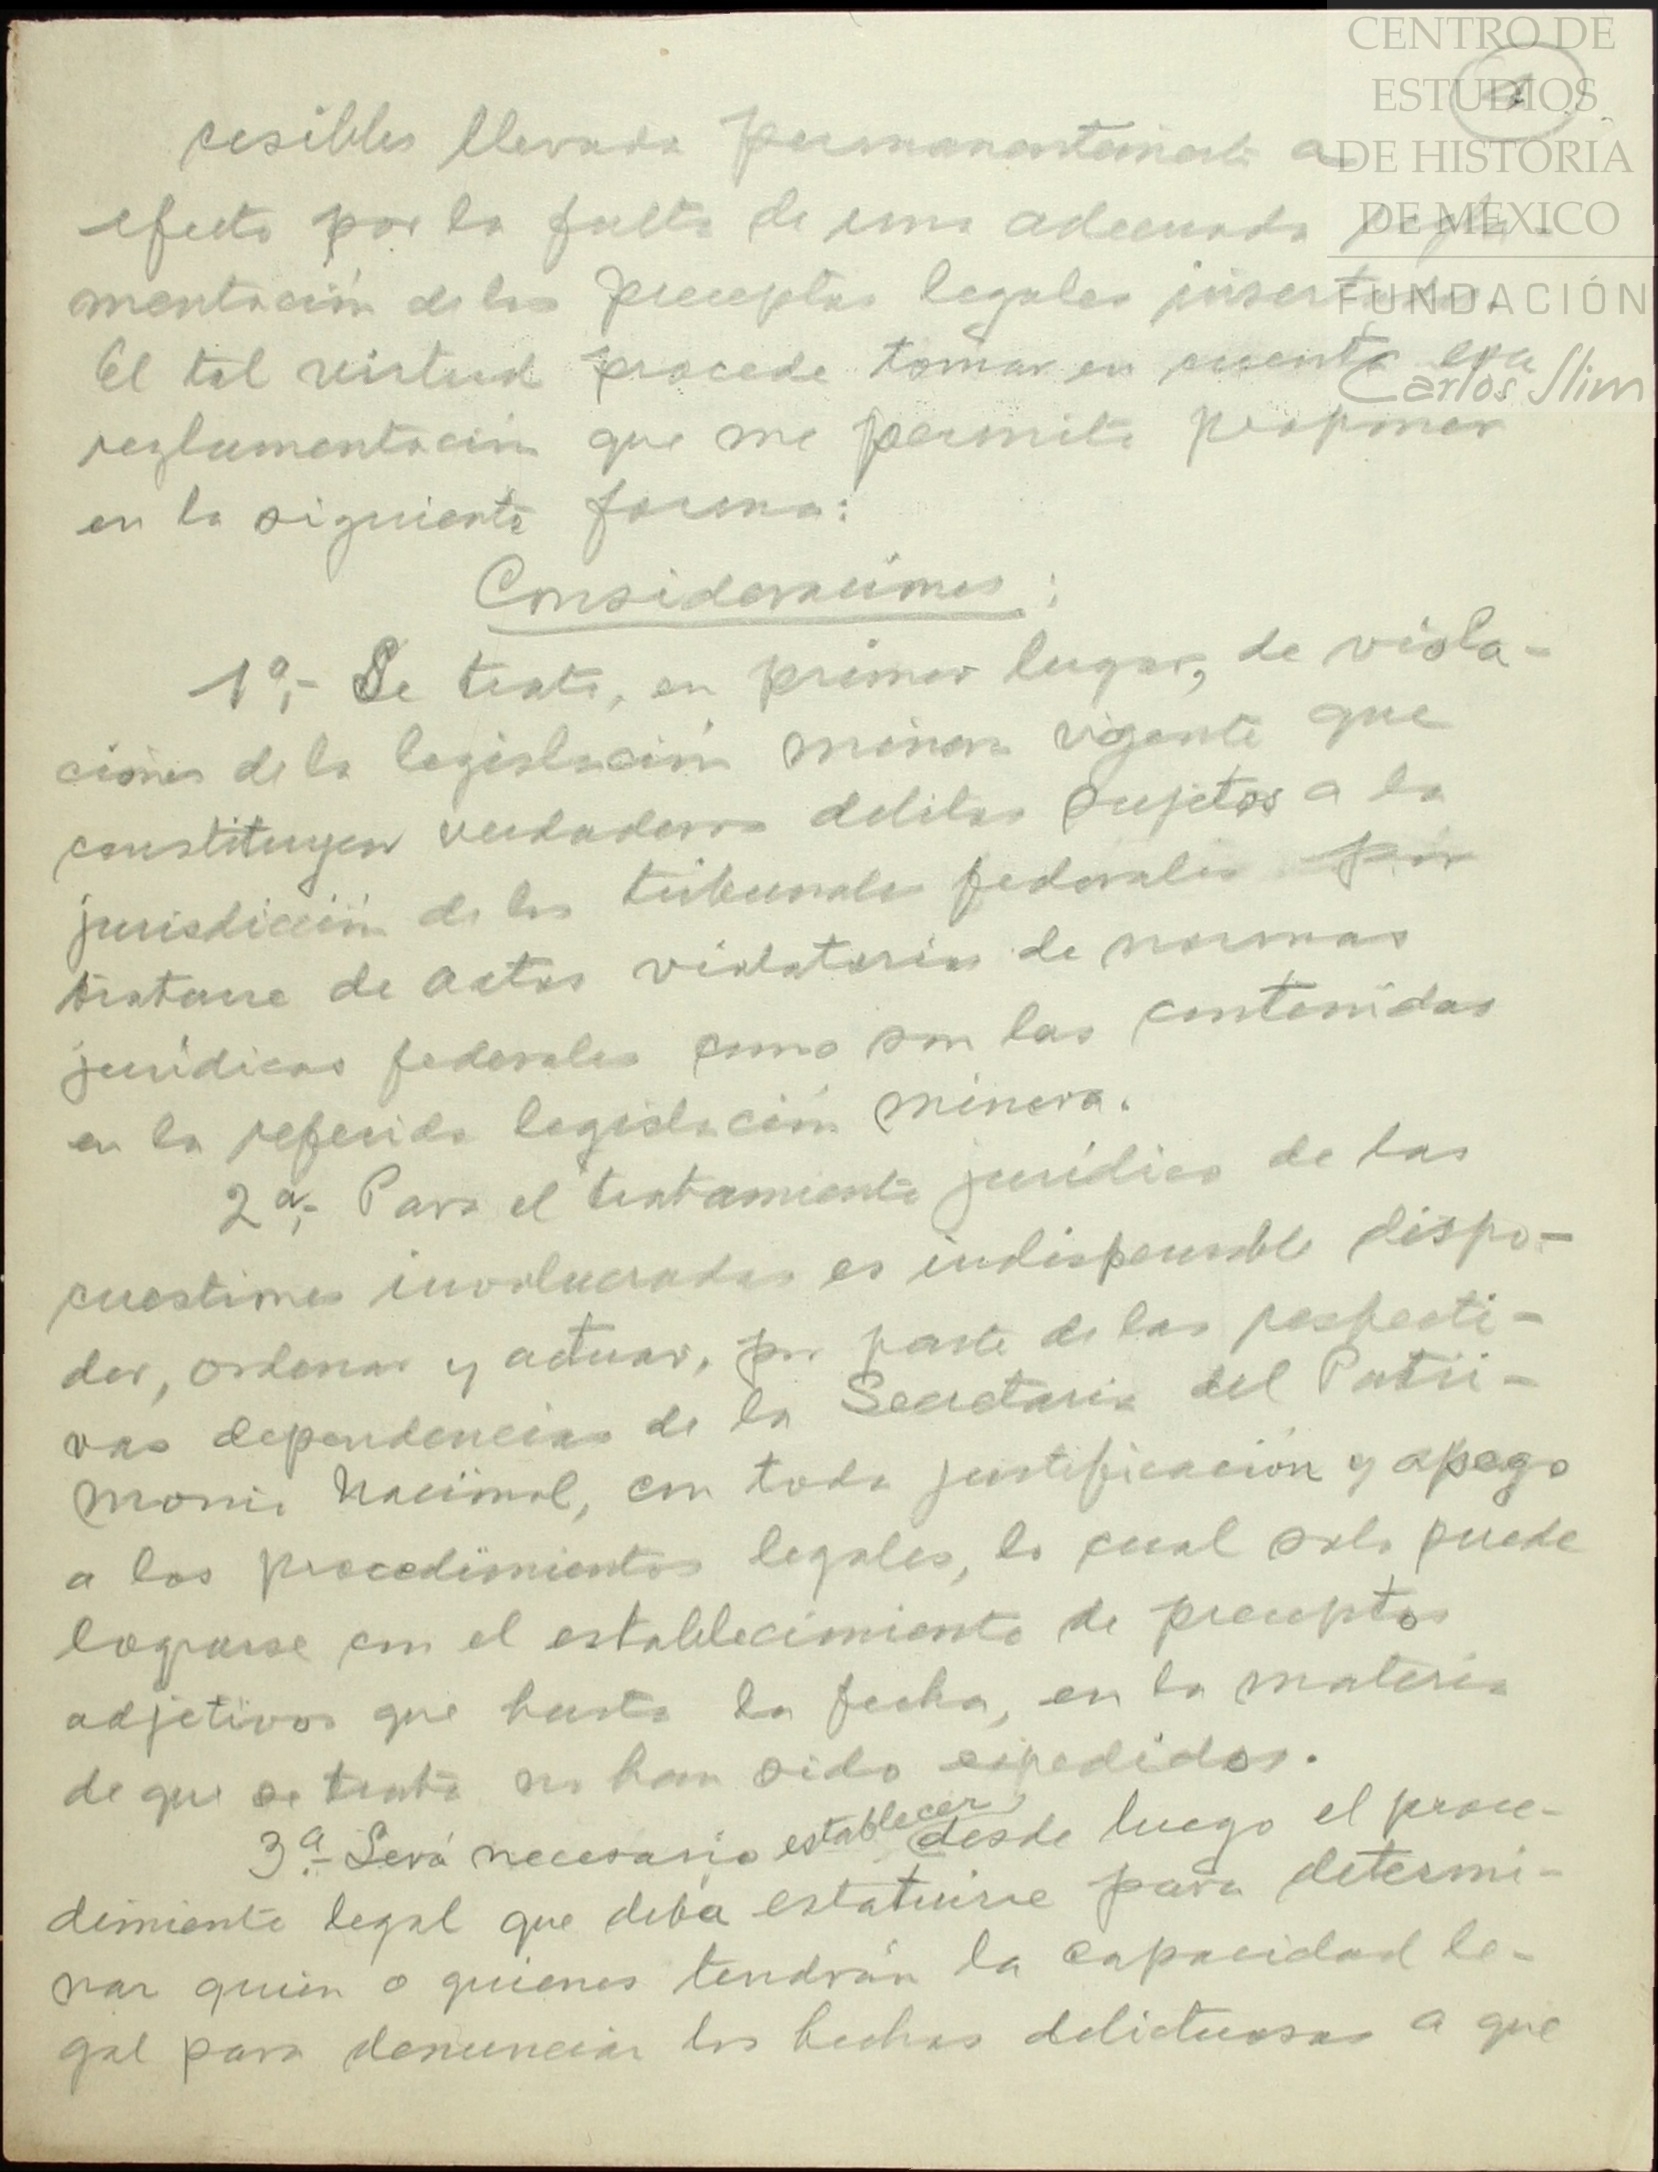 CENTRO DE
ESTUDIOS
DE HISTORIA
DE MÉXICO
FUNDACIÓN
Carlos Slim
cesibles llevada permanentemente a
efecto por la falta de una adecuada regla-
mentación de los preceptos legales insertados.
El tal virtud procede tomar en cuenta esa
reglamentación que me permito proponer
en la siguiente forma:
Consideraciones:
1a,- Se trata, en primer lugar, de viola-
ciones de la legislación minera vigente que
constituyen verdaderos delitos sujetos a la
jurisdicción de los tribunales federales por
tratarse de actos violatorios de normas
jurídicas federales como son las contenidas
en la referida legislación minera.
2a,- Para el tratamiento jurídico de las
cuestiones involucradas es indispensable dispo-
der, ordenar y actuar, por parte de las respecti-
vas dependencias de la Secretaria del Patri-
monio Nacional, con toda justificación y apego
a los procedimientos legales, lo cual solo puede
lograrse con el establecimiento de preceptos
adjetivos que hasta la fecha, en la materia
de que se trata no han sido expedidos.
3a.- Será necesario establecer, desde luego el proce-
dimiento legal que deba estatuirse para determi-
nar quien o quienes tendrán la capacidad le-
gal para denunciar los hechos delictuosos a que